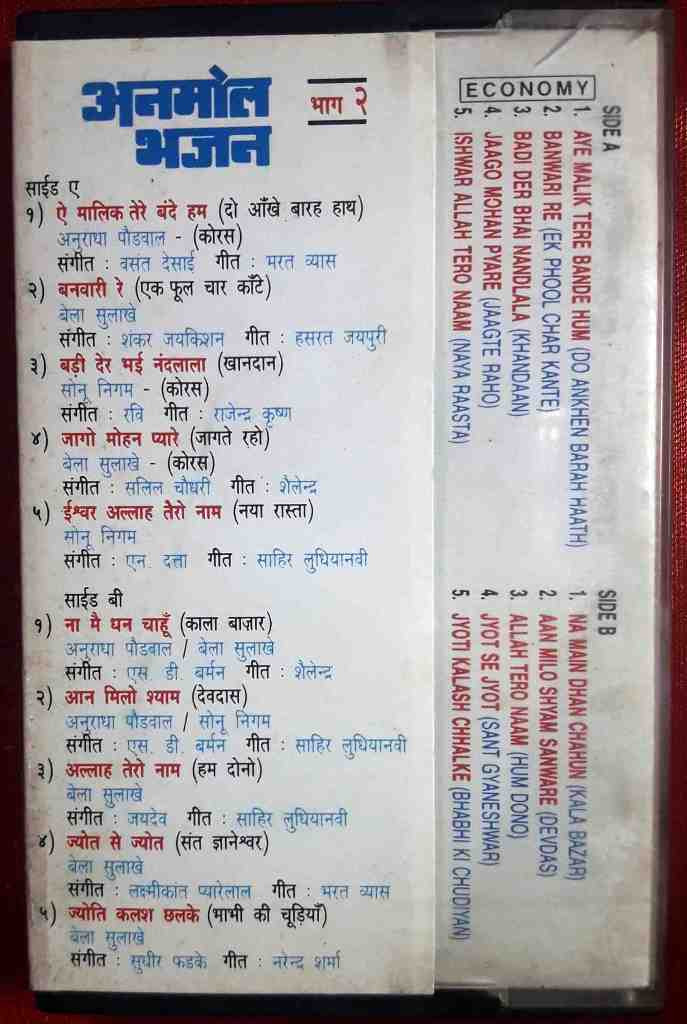 अनमोल
भजन
भाग २
साईड ए
१) ऐ मालिक तेरे बंदे हम (दो आँखे बारह हाथ)
अनुराधा पौडवाल - (कोरस)
संगीत : वसंत देसाई गीत : भरत व्यास
२) बनवारी रे (एक फूल चार काँटे)
बेला सुलाखे
संगीत : शंकर जयकिशन गीत : हसरत जयपुरी
३) बड़ी देर भई नंदलाला (खानदान)
सोनू निगम - (कोरस)
संगीत : रवि गीत : राजेन्द्र कृष्ण
४) जागो मोहन प्यारे (जागते रहो)
बेला सुलाखे - (कोरस)
संगीत : सलिल चौधरी गीत : शैलेन्द्र
५) ईश्वर अल्लाह तेरो नाम (नया रास्ता)
सोनू निगम
संगीत : एन. दत्ता गीत : साहिर लुधियानवी
साईड बी
१) ना मै धन चाहूँ (काला बाज़ार)
अनुराधा पौडवाल / बेला सुलाखे
संगीत : एस. डी. बर्मन गीत : शैलेन्द्र
२) आन मिलो श्याम (देवदास)
अनुराधा पौडवाल / सोनू निगम
संगीत : एस. डी. बर्मन गीत : साहिर लुधियानवी
३) अल्लाह तेरो नाम (हम दोनो)
बेला सुलाखे
संगीत : जयदेव गीत : साहिर लुधियानवी
४) ज्योत से ज्योत (संत ज्ञानेश्वर)
बेला सुलाखे
संगीत : लक्ष्मीकांत प्यारेलाल गीत : भरत व्यास
५) ज्योति कलश छलके (भाभी की चूड़ियाँ)
बेला सुलाखे
संगीत : सुधीर फडके गीत : नरेन्द्र शर्मा
ECONOMY
SIDE A
1. AYE MALIK TERE BANDE HUM (DO ANKHEN BARAH HAATH)
2. BANWARI RE (EK PHOOL CHAR KANTE)
3. BADI DER BHAI NANDLALA (KHANDAAN)
4. JAAGO MOHAN PYARE (JAAGTE RAHO)
5. ISHWAR ALLAH TERO NAAM (NAYA RAASTA)
SIDE B
1. NA MAIN DHAN CHAHUN (KALA BAZAR)
2. AAN MILO SHYAM SANWARE (DEVDAS)
3. ALLAH TERO NAAM (HUM DONO)
4. JYOT SE JYOT (SANT GYANESHWAR)
5. JYOTI KALASH CHHALKE (BHABHI KI CHUDIYAN)